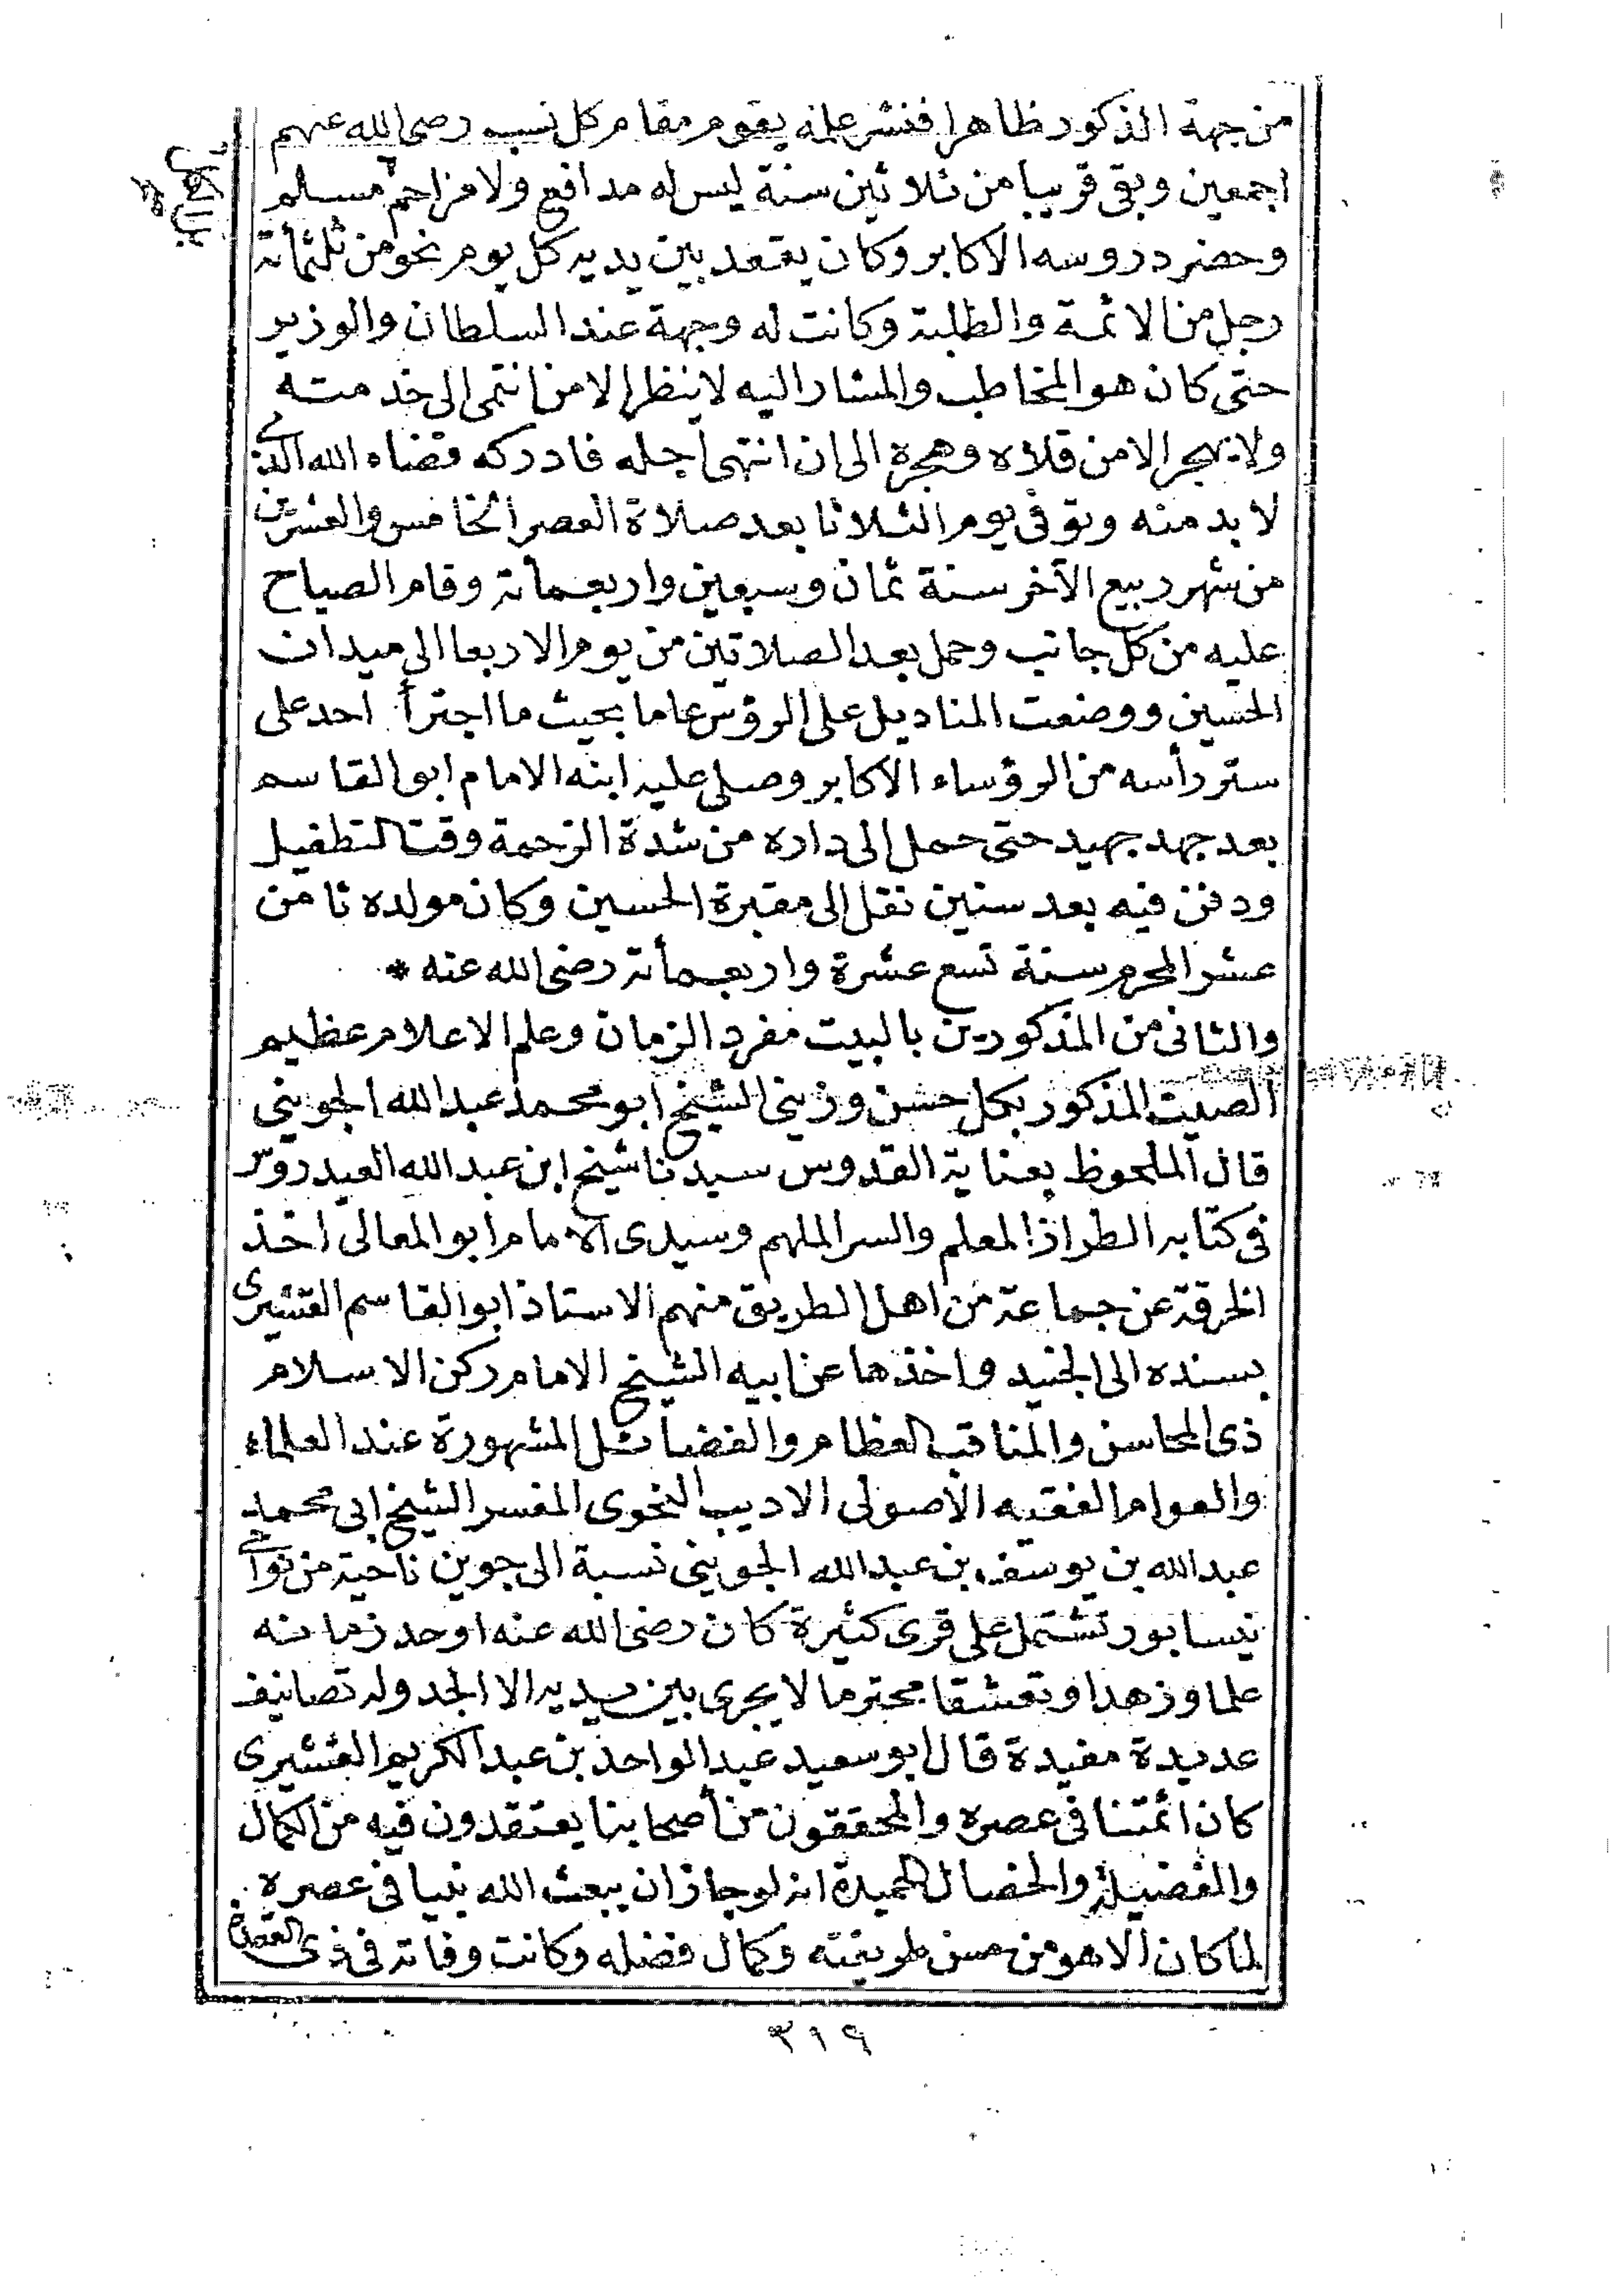 من جهة الذكور ظاهرا فنشر علمه يقوم مقام كل نسب رضى الله عنهم
اجمعين وبقى قريبا من ثلاثين سنة ليس له مدافع ولا مزاحم مسلم
وحضر دروسه الاكابر وكان يقعد بين يديه كل يوم نحو من ثلثمأة
رجل من الائمة والطلبة وكانت له وجهة عند السلطان والوزير
حتى كان هو المخاطب والمشار اليه لا ينظر الا من انتمى الى خدمته
ولا يهجر الا من قلاه وهجره الى ان انتهى اجله فادركه قضاء الله الذى
لا بد منه وتوفى يوم الثلاثا بعد صلاة العصر الخامس والعشرين
من شهر ربيع الآخر سنة ثمان وسبعين واربعمأة وقام الصياح
عليه من كل جانب وحمل بعد الصلاتين من يوم الاربعا الى ميدان
الحسين ووضعت المناديل على الرؤس عاما بحيث ما اجترأ احد على
ستر رأسه من الرؤساء الاكابر وصلى عليه ابنه الامام ابو القاسم
بعد جهد جهيد حتى حمل الى داره من شدة الزحمة وقت التطفيل
ودفن فيه بعد سنين نقل الى مقبرة الحسين وكان مولده ثامن
عشر المحرم سنة تسع عشرة واربعمأة رضى الله عنه *
والثانى من المذكورين بالبيت مفرد الزمان وعلم الاعلام عظيم
الصيت المذكور بكل حسن وزينى الشيخ ابو محمد عبد الله الجوينى
قال الملحوظ بعناية القدوس سيدنا شيخ ابن عبد الله العيدروس
فى كتابه الطراز المعلم والسر الملهم وسيدى الامام ابو المعالى اخذ
الخرقة عن جماعة من اهل الطريق منهم الاستاذ ابو القاسم القشيرى
بسنده الى الجنيد واخذها عن ابيه الشيخ الامام ركن الاسلام
ذى المحاسن والمناقب العظام والفضائل المشهورة عند العلماء
والعوام الفقيه الأصولى الاديب النحوى المفسر الشيخ ابى محمد
عبد الله بن يوسف بن عبد الله الجوينى نسبة الى جوين ناحية من نواحى
نيسابور تشتمل على قرى كثيرة كان رضى الله عنه اوحد زمانه
علما وزهدا وتقشفا محترما لا يجرى بين يديه الا الجد وله تصانيف
عديدة مفيدة قال ابو سعيد عبد الواحد بن عبد الكريم القشيرى
كان ائمتنا فى عصره والمحققون من أصحابنا يعتقدون فيه من الكمال
والفضيلة والخصال الحميدة انه لو جاز ان يبعث الله نبيا فى عصره
لما كان الا هو من حسن طريقته وكمال فضله وكانت وفاته فى ذى القعدة
٣١٩